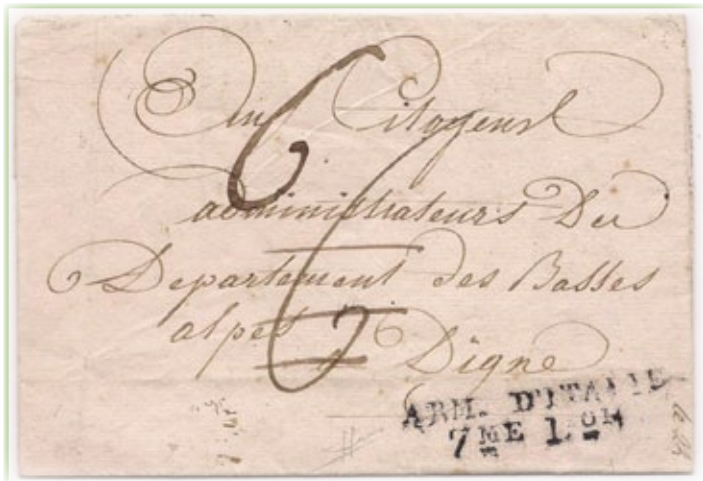 Aux Citoyens
administrateurs Du
Departement des Basses
alpes
a Digne
6
6
ARM. D'ITALIE
7ME 1.ON